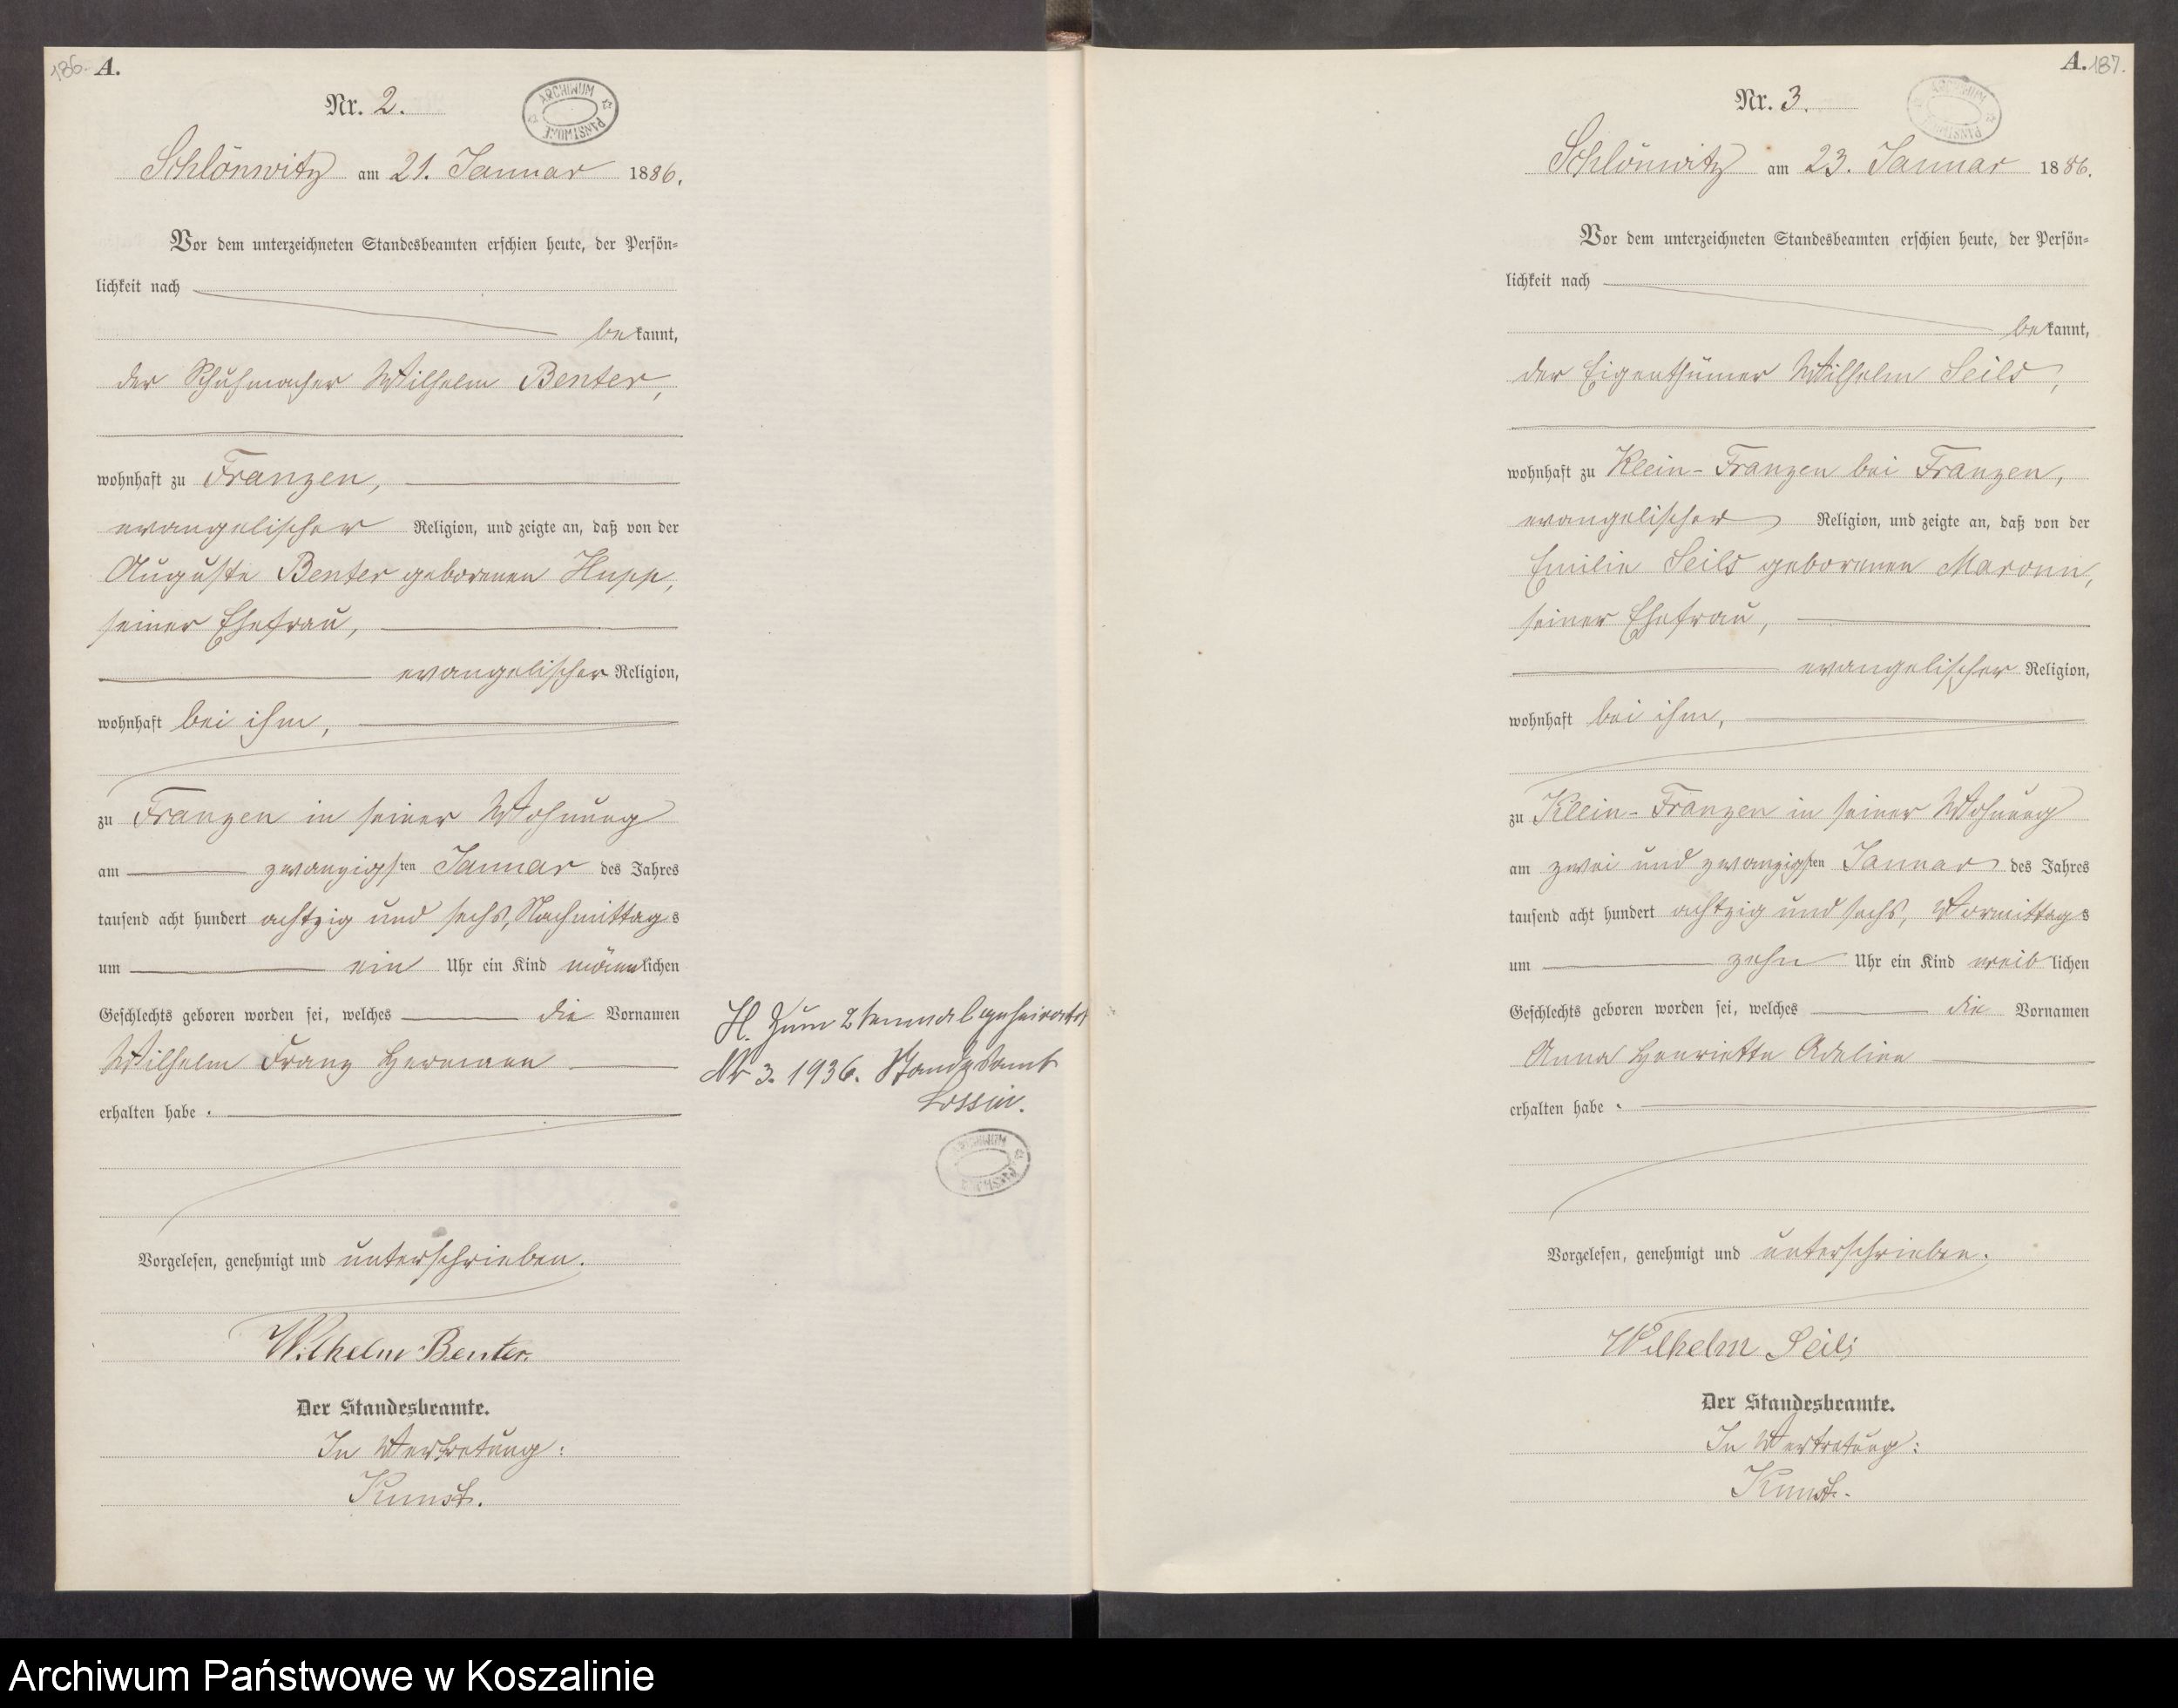 186. A.
Nr. 2.
ARCHIWUM PAŃSTWOWE
Schlönwitz am 21. Januar 1886.
Vor dem unterzeichneten Standesbeamten erschien heute, der Persön=
lichkeit nach
bekannt,
der Schuhmacher Wilhelm Benter,
wohnhaft zu Franzen,
evangelischer Religion, und zeigte an, daß von der
Auguste Benter geborenen Hupp,
seiner Ehefrau,
evangelischer Religion,
wohnhaft bei ihm,
zu Franzen in seiner Wohnung
am zwanzigsten Januar des Jahres
tausend acht hundert achtzig und sechs, Nachmittags
um ein Uhr ein Kind männlichen
Geschlechts geboren worden sei, welches die Vornamen
Wilhelm Franz Hermann
erhalten habe.
Vorgelesen, genehmigt und unterschrieben.
Wilhelm Benter.
Der Standesbeamte.
In Vertretung:
Kunst.
H. Zum 2tenmal geheiratet
Nr 3. 1936. Standesamt
Lossin.
ARCHIWUM PAŃSTWOWE
A. 187.
Nr. 3.
ARCHIWUM PAŃSTWOWE
Schlönwitz am 23. Januar 1886.
Vor dem unterzeichneten Standesbeamten erschien heute, der Persön=
lichkeit nach
bekannt,
der Eigenthümer Wilhelm Seils,
wohnhaft zu Klein-Franzen bei Franzen,
evangelischer Religion, und zeigte an, daß von der
Emilie Seils geborenen Maronn,
seiner Ehefrau,
evangelischer Religion,
wohnhaft bei ihm,
zu Klein-Franzen in seiner Wohnung
am zwei und zwanzigsten Januar des Jahres
tausend acht hundert achtzig und sechs, Vormittags
um zehn Uhr ein Kind weiblichen
Geschlechts geboren worden sei, welches die Vornamen
Anna Henriette Adeline
erhalten habe.
Vorgelesen, genehmigt und unterschrieben.
Wilhelm Seils
Der Standesbeamte.
In Vertretung:
Kunst.
Archiwum Państwowe w Koszalinie